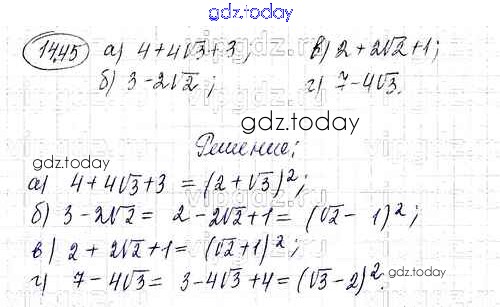 gdz.today
1445 а) 4+4√3+3; в) 2+2√2+1;
б) 3-2√2; г) 7-4√3.
gdz.today
Решение:
а) 4+4√3+3 = (2+√3)²;
б) 3-2√2 = 2-2√2+1 = (√2-1)²;
в) 2+2√2+1 = (√2+1)²;
г) 7-4√3 = 3-4√3+4 = (√3-2)².
gdz.today